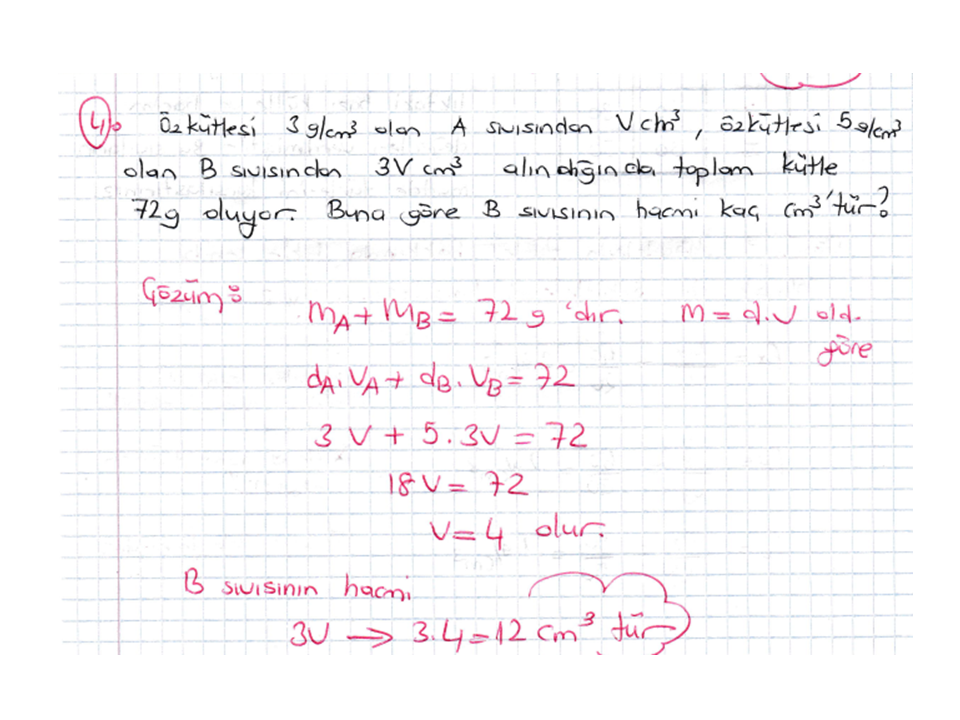 4) Özkütlesi 3 g/cm³ olan A sıvısından V cm³, özkütlesi 5 g/cm³
olan B sıvısından 3V cm³ alındığında toplam kütle
72g oluyor. Buna göre B sıvısının hacmi kaç cm³'tür?
Çözüm:
mA + mB = 72 g 'dır. m = d.V old.
göre
dA.VA + dB.VB = 72
3 V + 5.3V = 72
18V = 72
V = 4 olur.
B sıvısının hacmi
3V → 3.4 = 12 cm³ tür